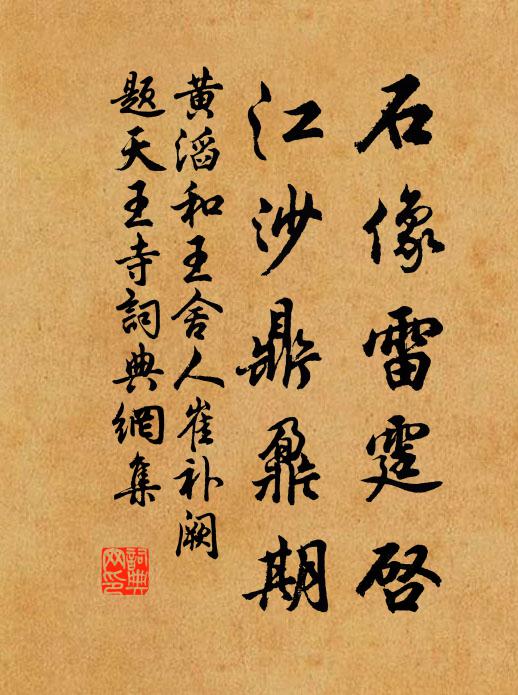 石像雷霆啓
江沙鼎鼐期
黄滔和王舍人崔补阙
题天王寺詞典網集
詞典网印